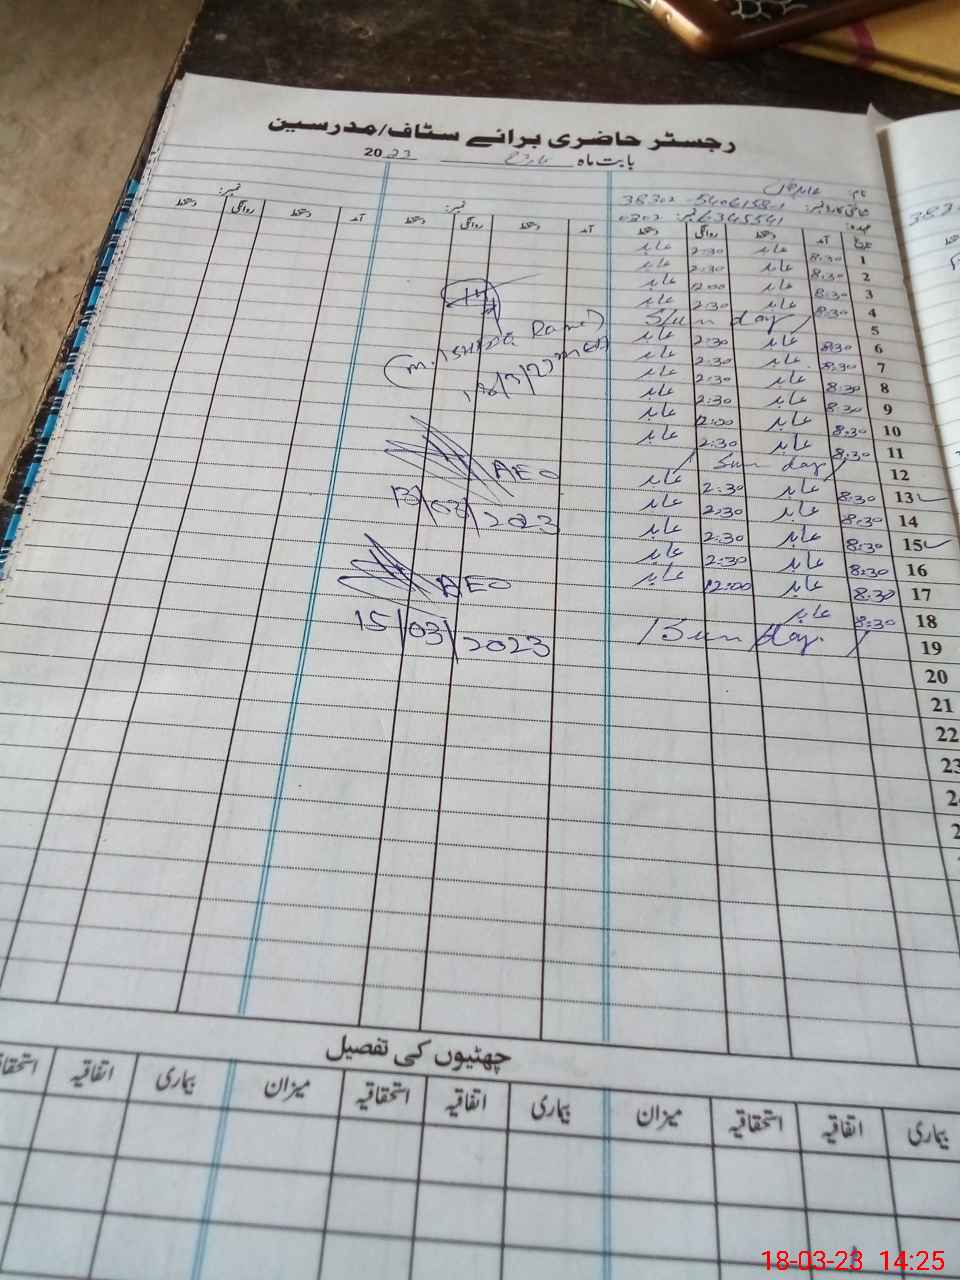 رجسٹر حاضری برائے سٹاف/مدرسین
بابت ماہ مارچ 2023
نام:
شناختی کارڈ نمبر: 38302-5406158-1
عہدہ: نمبر: 0302 6345541
تاریخ آمد دستخط روانگی دستخط آمد دستخط روانگی دستخط آمد دستخط روانگی دستخط
1 8:30 عابد 2:30 عابد
2 8:30 عابد 2:30 عابد
3 8:30 عابد 12:00 عابد
4 8:30 عابد 2:30 عابد
5 Sunday
6 8:30 عابد 2:30 عابد
7 8:30 عابد 2:30 عابد
8 8:30 عابد 2:30 عابد
9 8:30 عابد 2:30 عابد
10 8:30 عابد 12:00 عابد
11 8:30 عابد 2:30 عابد
12 Sunday
13 8:30 عابد 2:30 عابد
14 8:30 عابد 2:30 عابد
15 8:30 عابد 2:30 عابد
16 8:30 عابد 2:30 عابد
17 8:30 عابد 12:00 عابد
18 8:30 عابد
19 Sunday
20
21
22
23
AEO
13/03/2023
AEO
15/03/2023
چھٹیوں کی تفصیل
بیماری اتفاقیہ استحقاقیہ میزان بیماری اتفاقیہ استحقاقیہ میزان بیماری اتفاقیہ
18-03-23 14:25